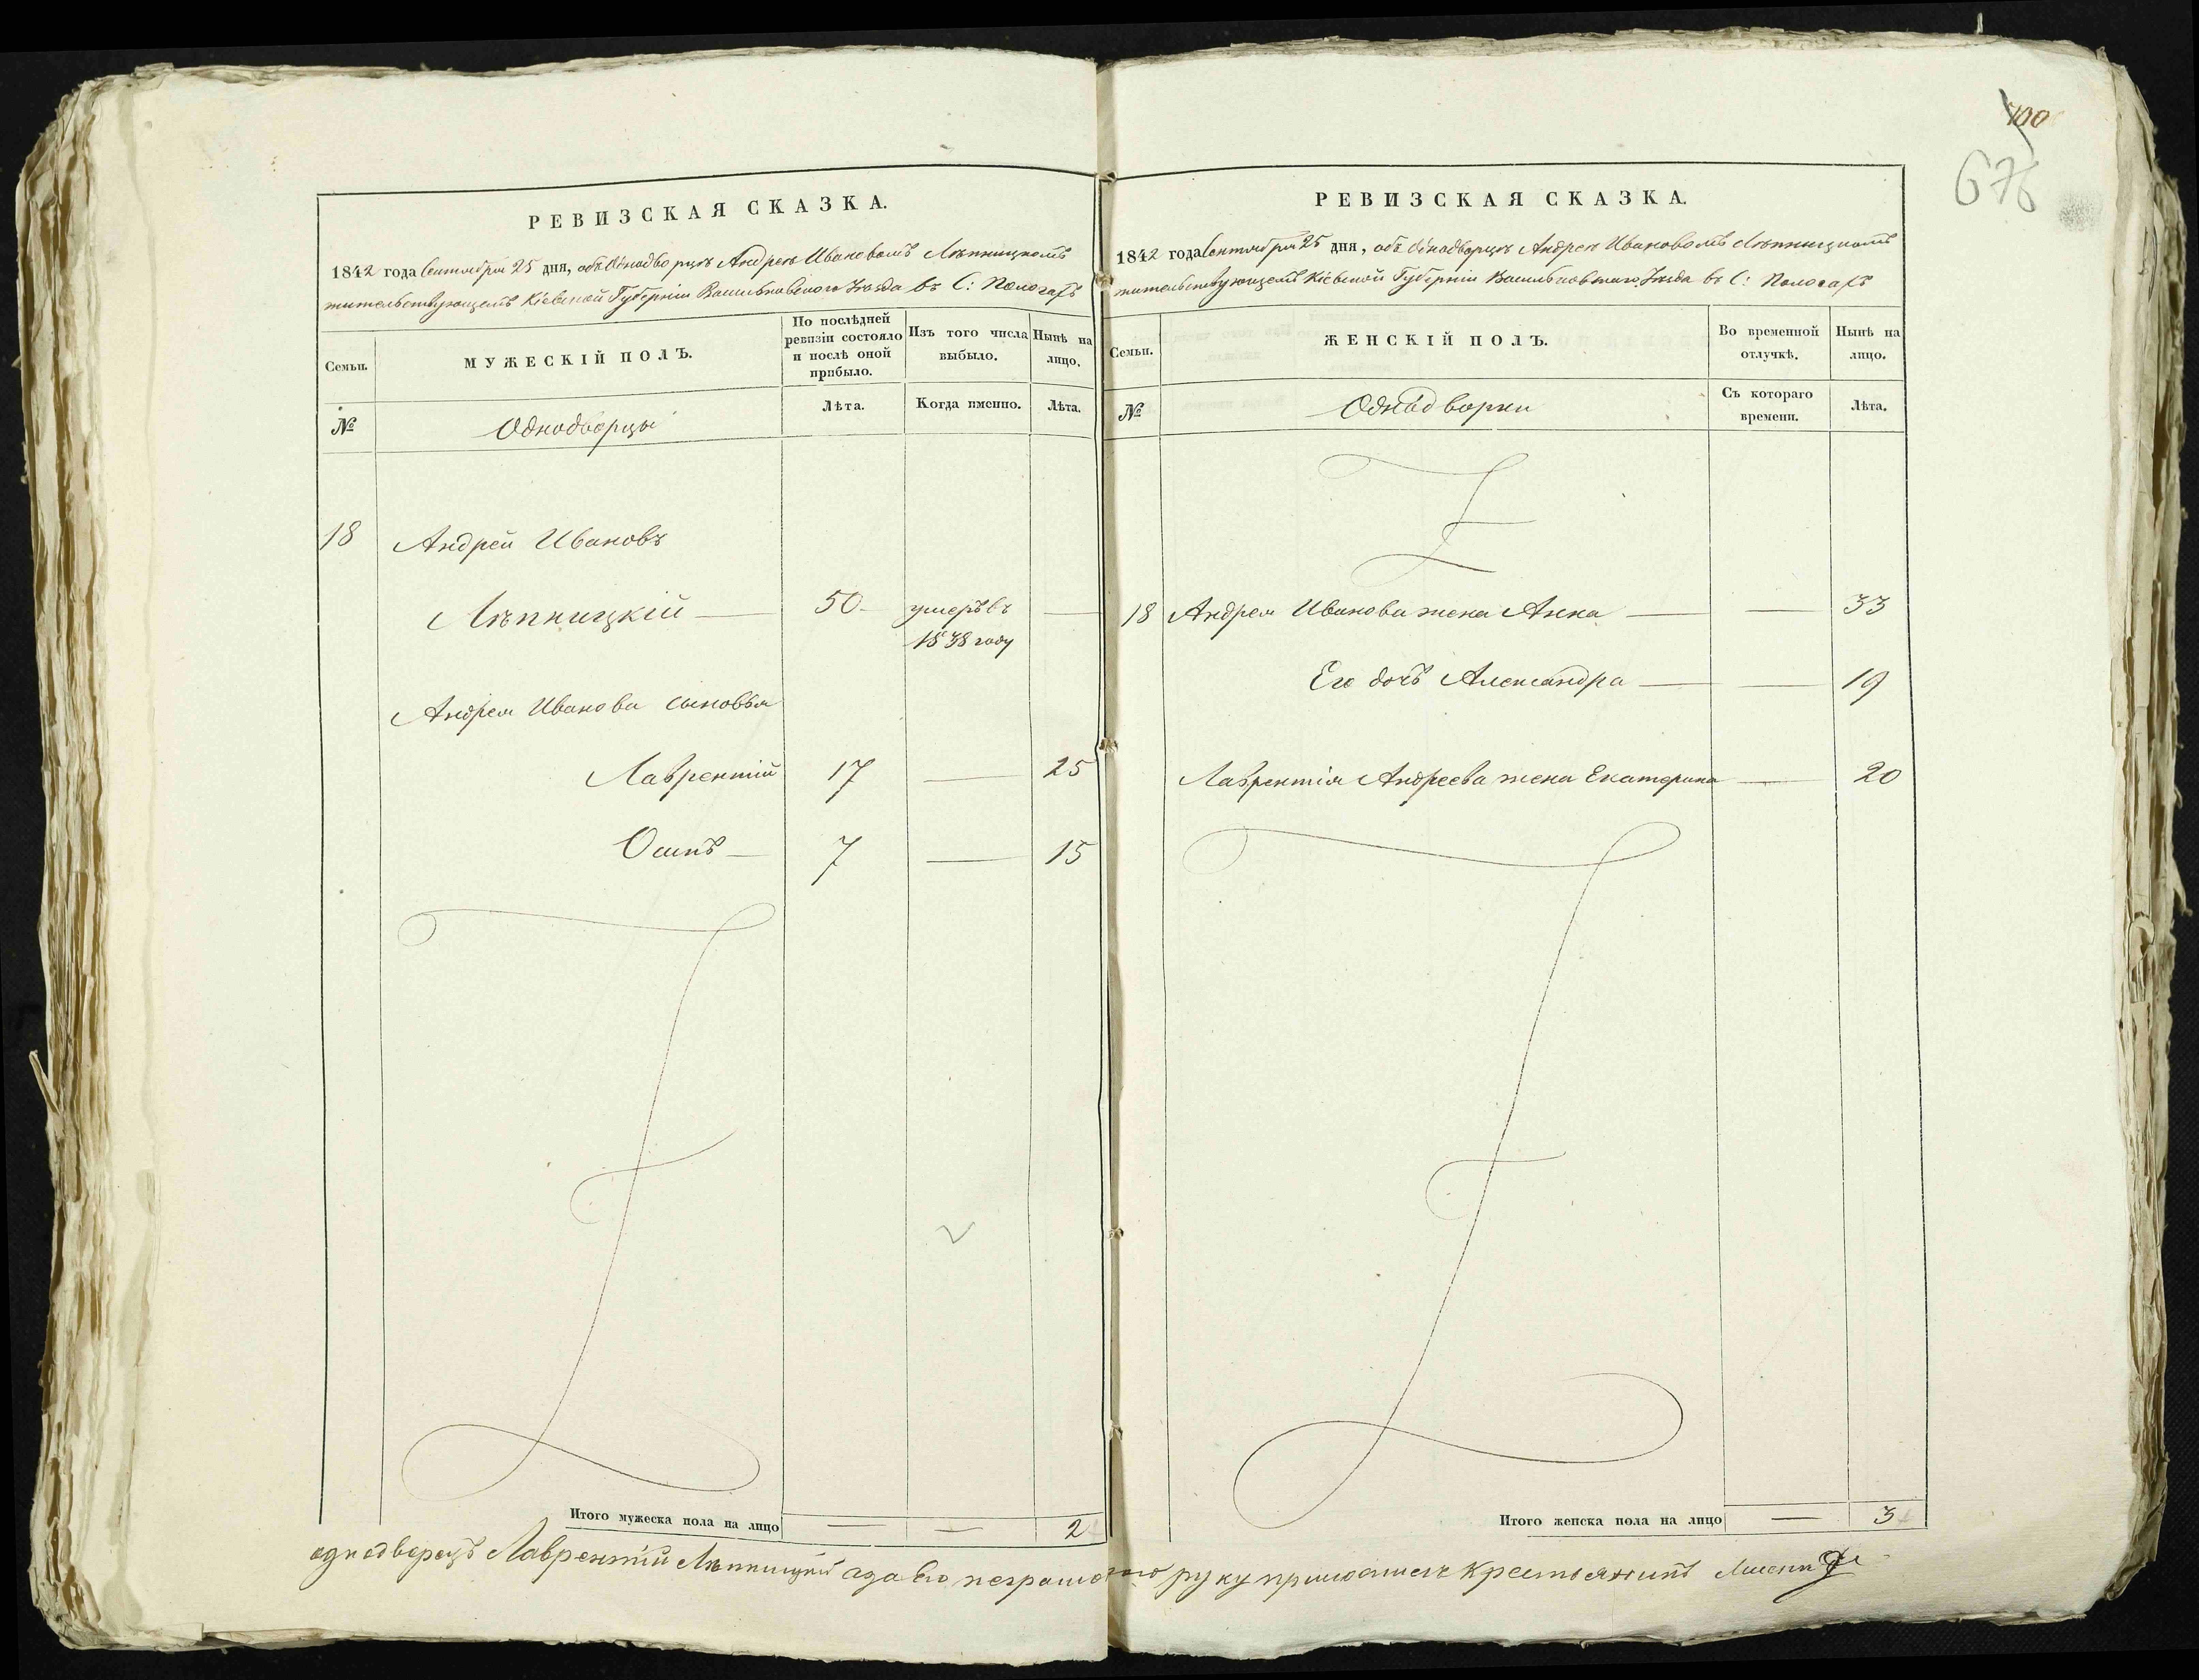 700
676
РЕВИЗСКАЯ СКАЗКА.
1842 года Сентября 25 дня, объ Однодворцѣ Андреѣ Ивановомъ Лѣпницкомъ
жительствующемъ Кіевской Губерніи Васильковского Уѣзда въ С: Пологахъ
Семьи.
МУЖЕСКІЙ ПОЛЪ.
По послѣдней ревизіи состояло и послѣ оной прибыло.
Изъ того числа выбыло.
Нынѣ на лицо.
№
Однодворцы
Лѣта.
Когда именно.
Лѣта.
18 Андрей Ивановъ
Лѣпницкій — 50 — умеръ въ —
1838 году
Андрея Иванова сыновья
Лаврентій 17 — 25
Осипъ — 7 — 15
Итого мужеска пола на лицо — — 2
РЕВИЗСКАЯ СКАЗКА.
1842 года Сентября 25 дня, объ Однодворцѣ Андреѣ Ивановомъ Лѣпницкомъ
жительствующемъ Кіевской Губерніи Васильковскаго Уѣзда въ С: Пологахъ
Семьи.
ЖЕНСКІЙ ПОЛЪ.
Во временной отлучкѣ.
Нынѣ на лицо.
№
Однодворки
Съ котораго времени.
Лѣта.
18 Андрея Иванова жена Анна — — 33
Его дочь Александра — — 19
Лаврентія Андреева жена Екатерина — 20
Итого женска пола на лицо — 3
однодворецъ Лаврентій Лѣпницкій а за его неграмотного руку приложилъ крестьянинъ